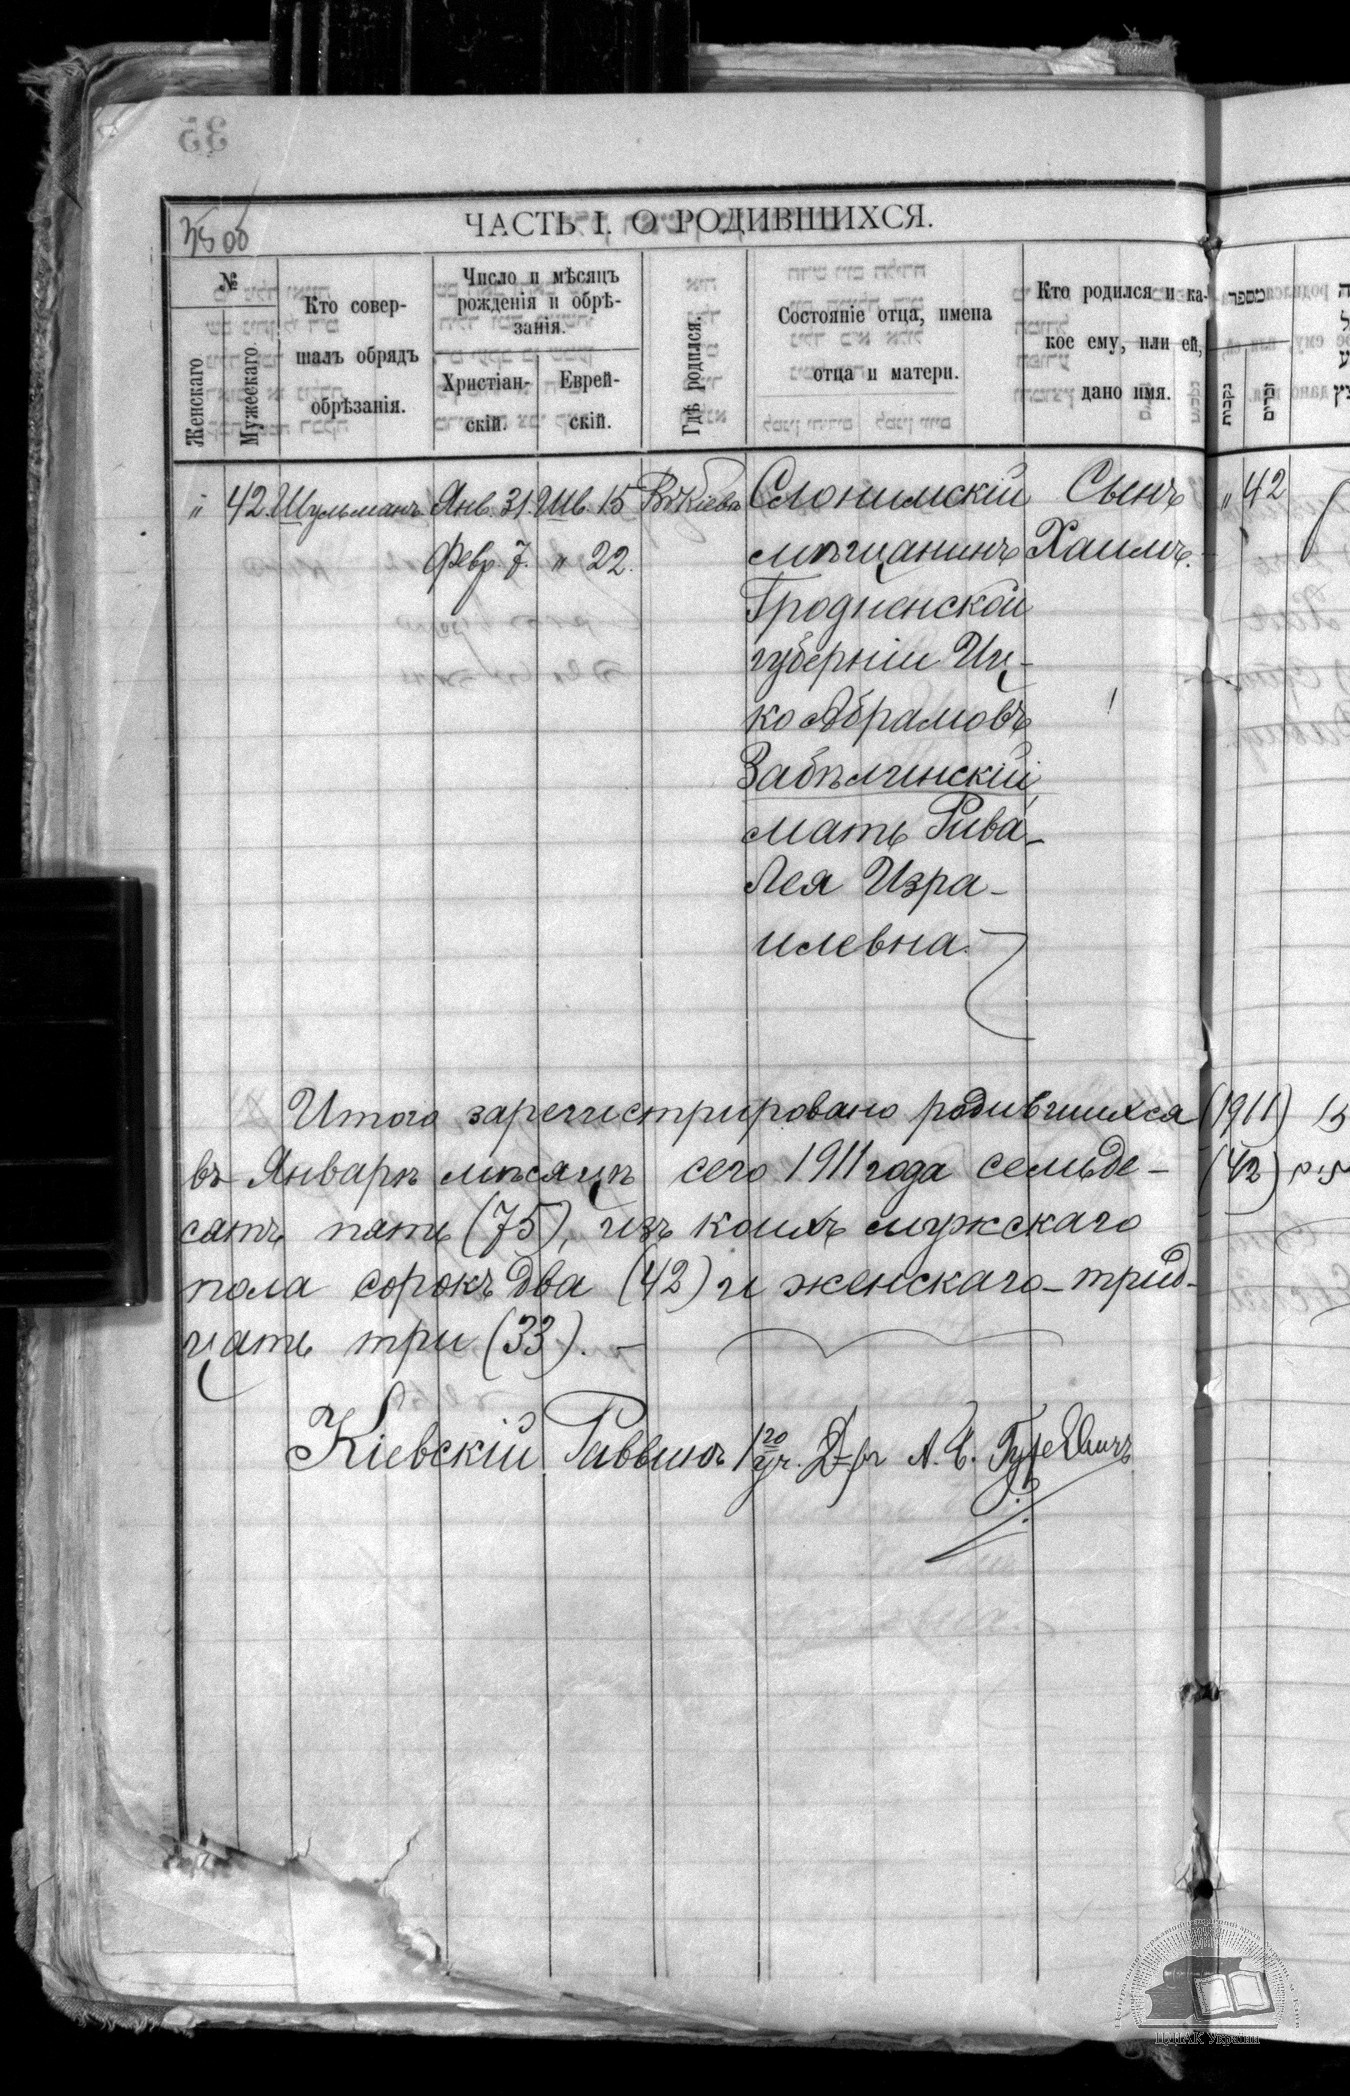 35
35 об
ЧАСТЬ I. О РОДИВШИХСЯ.
№
Женскаго
Мужескаго.
Кто совер-
шалъ обрядъ
обрѣзанія.
Число и мѣсяцъ
рожденія и обрѣ-
занія.
Христіан-
скій.
Еврей-
скій.
Гдѣ родился.
Состояніе отца, имена
отца и матери.
Кто родился и ка-
кое ему, или ей,
дано имя.
מספר
נקבות
זכרים
" 42. Шульманъ Янв. 31. Шв. 15 Въ Кіевѣ Слонимскій Сынъ " 42
Февр. 7. " 22. мѣщанинъ Хаимъ.
Гродненской
губерніи Иц-
ко Абрамовъ
Забѣлинскій,
мать Рива-
Лея Изра-
илевна.
Итого зарегистрировано родившихся (1911)
въ Январѣ мѣсяцѣ сего 1911 года семьде- (42)
сятъ пять (75), изъ коихъ мужскаго
пола сорокъ два (42) и женскаго - трид-
цать три (33). -
Кіевскій Раввинъ 1го уч. Д-ръ А. Б. Гуревичъ
ЦДІАК України